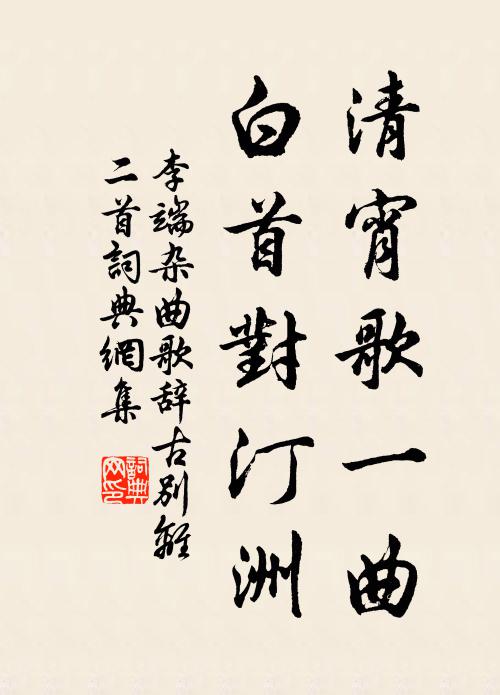 清宵歌一曲
白首對汀洲
李端杂曲歌辞古别離
二首詞典網集
詞典
网印